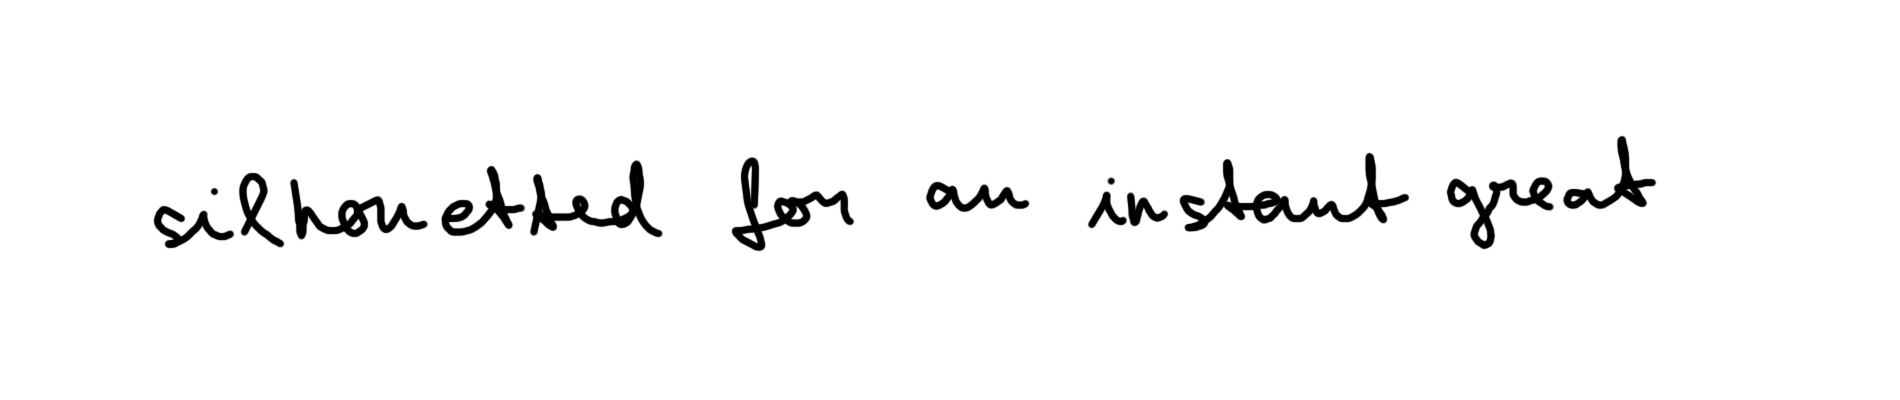 silhouetted for an instant great